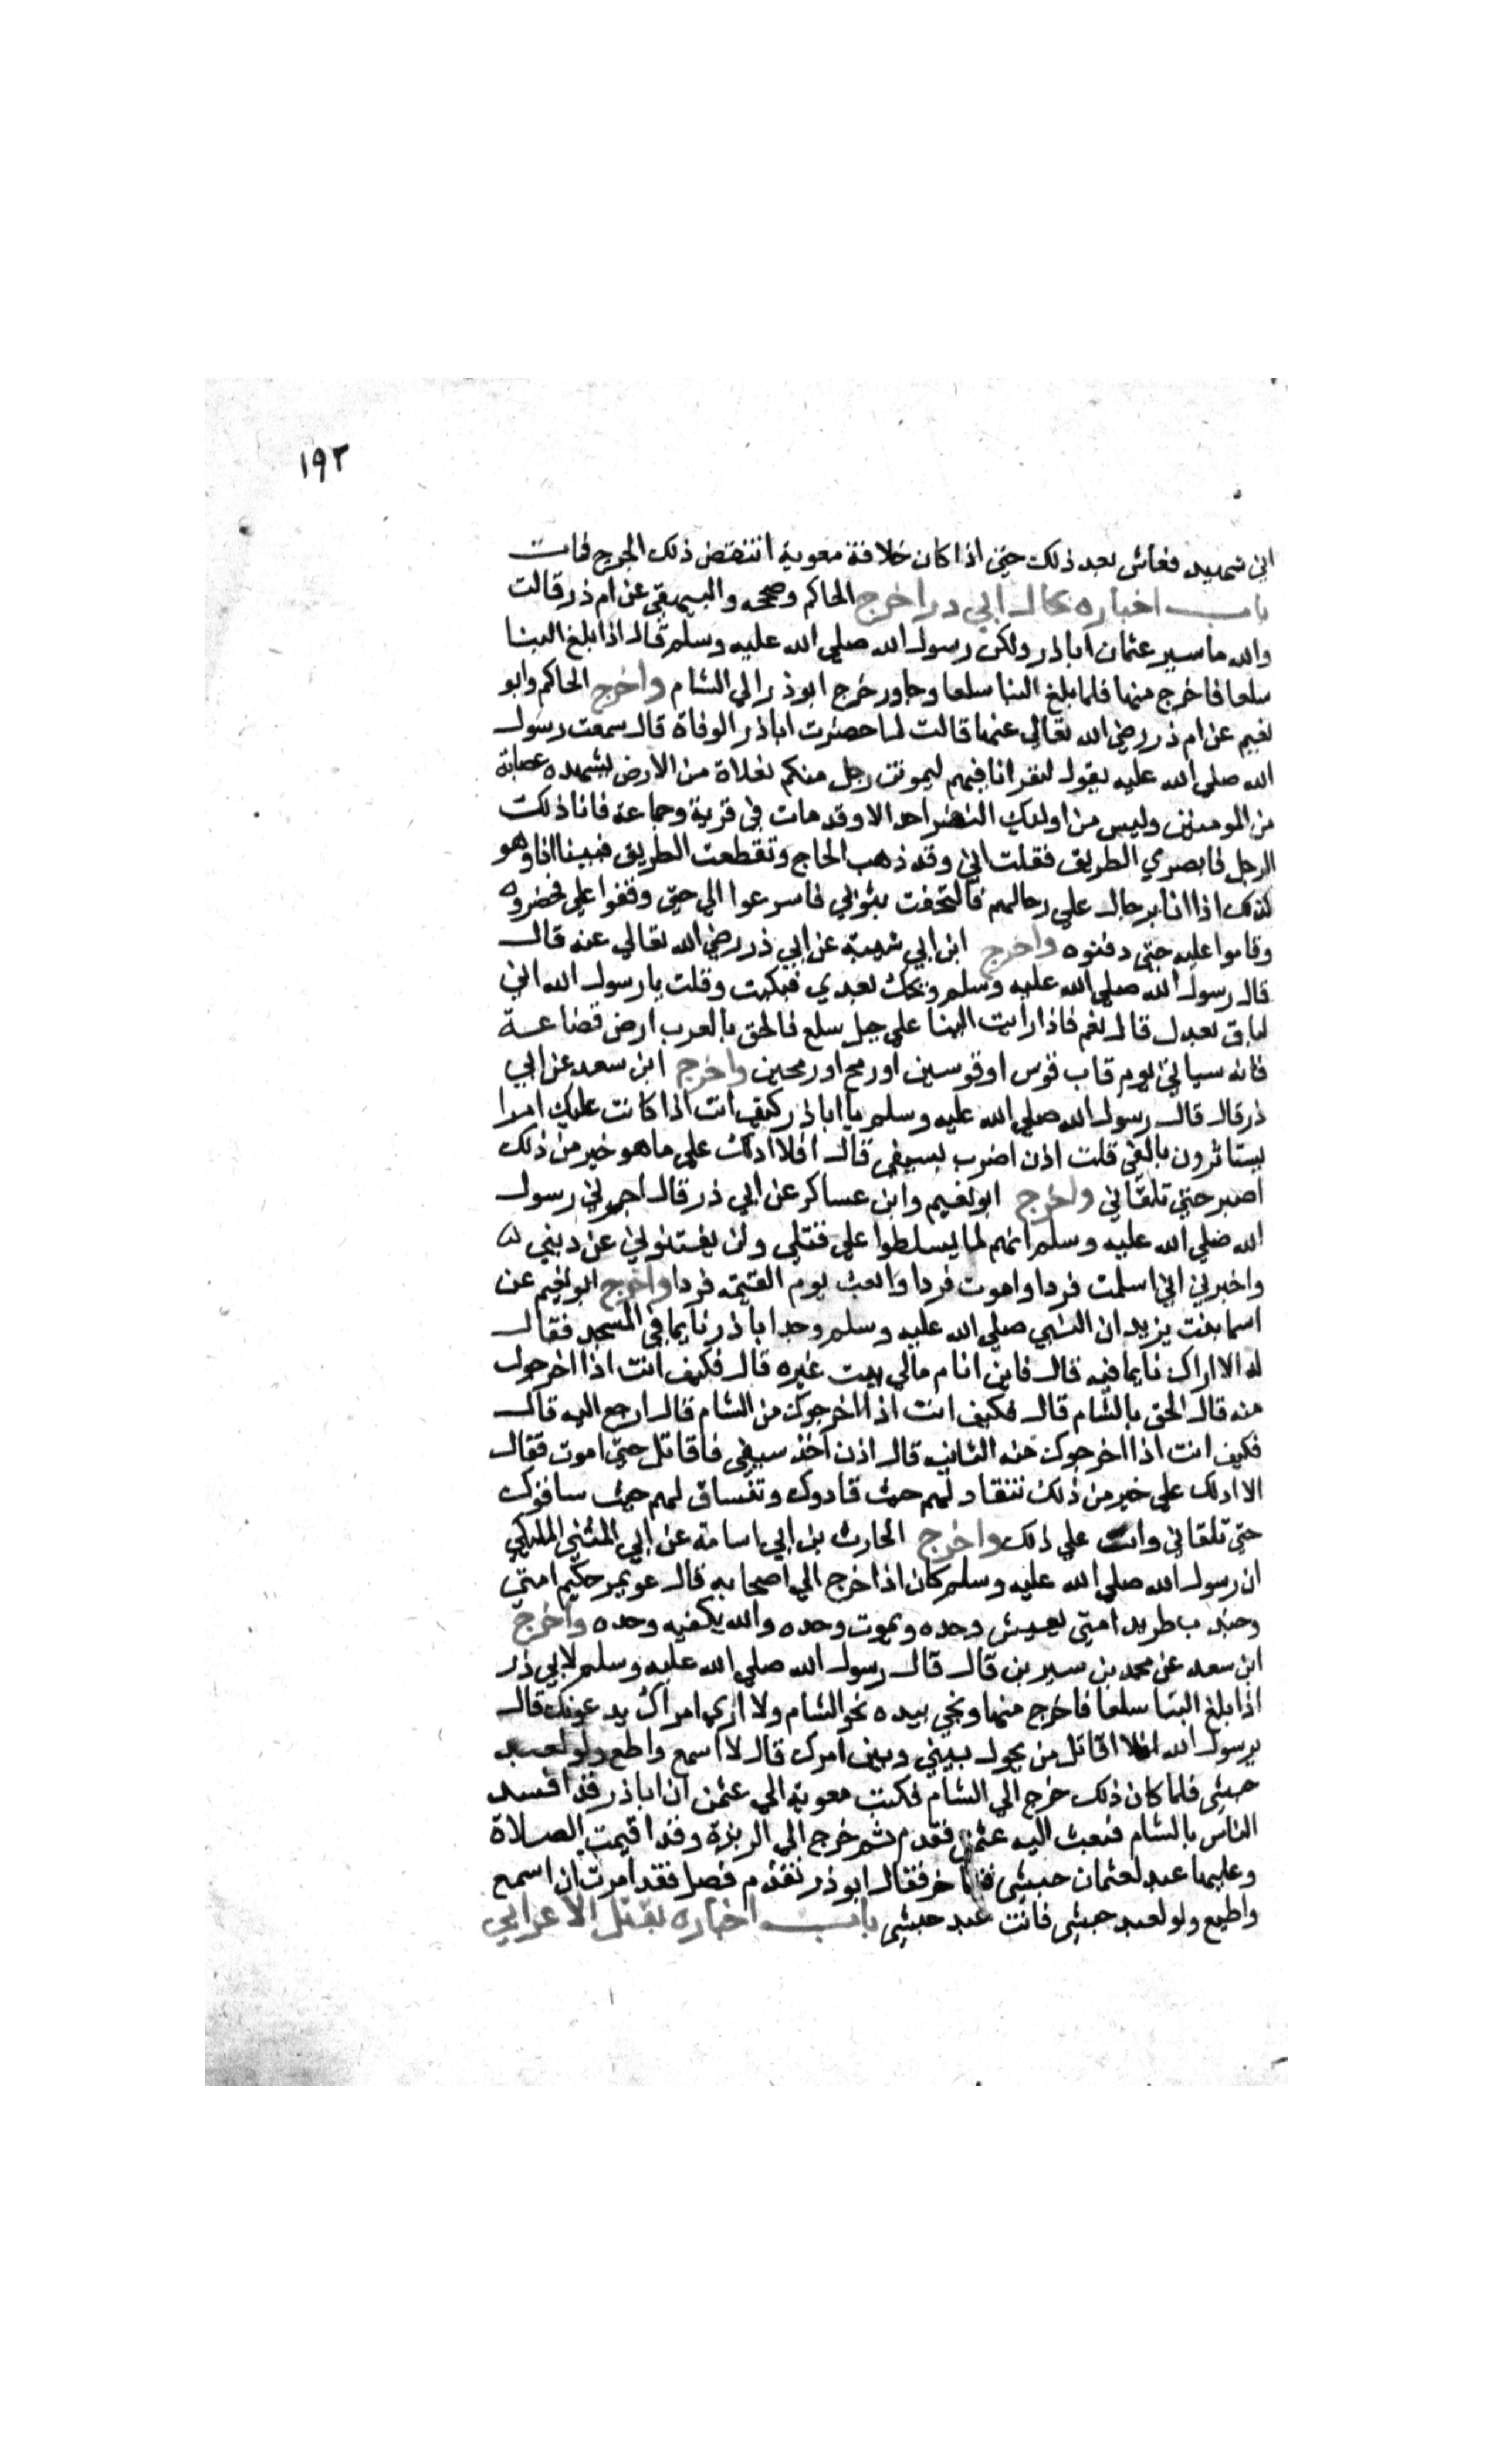 ١٩٢
اني شهيد فعاش بعد ذلك حتي اذا كان خلافة معوية انتقض ذلك الجرح فمات
باب اخباره بحال ابي ذر اخرج الحاكم وصححه والبيهقي عن ام ذر قالت
والله ما سير عثمان اباذر ولكن رسول الله صلي الله عليه وسلم قال اذا بلغ البنا
سلعا فاخرج منها فلما بلغ البنا سلعا وجاور خرج ابوذر الي الشام واخرج الحاكم وابو
نعيم عن ام ذر رضي الله تعالي عنها قالت لما حضرت اباذر الوفاة قال سمعت رسول
الله صلي الله عليه يقول لنفر انا فيهم ليموتن رجل منكم بفلاة من الارض يشهده عصابة
من المومنين وليس من اوليك النفر احد الا وقد مات في قرية وجماعة فانا ذلك
الرجل فابصري الطريق فقلت اني وقد ذهب الحاج وتقطعت الطريق فبينا انا وهو
كذلك اذا انا برجال علي رحالهم فالتحفت بثوبي فاسرعوا الي حتي وقفوا علي فحضروه
وقاموا عليه حتي دفنوه واخرج ابن ابي شيبة عن ابي ذر رضي الله تعالي عنه قال
قال رسول الله صلي الله عليه وسلم ويحك بعدي فبكيت وقلت يا رسول الله اني
لباق بعدك قال نعم فاذا رايت البنا علي جبل سلع فالحق بالعرب ارض قضاعة
فانه سياتي يوم قاب قوس او قوسين او رمح او رمحين واخرج ابن سعد عن ابي
ذر قال قال رسول الله صلي الله عليه وسلم يا اباذر كيف انت اذا كانت عليك امرا
يستاثرون بالفي قلت اذن اضرب بسيفي قال افلا ادلك علي ما هو خير من ذلك
اصبر حتي تلقاني واخرج ابو نعيم وابن عساكر عن ابي ذر قال اخبرني رسول
الله صلي الله عليه وسلم انهم لما يسلطوا علي قتلي ولن يفتنوني عن ديني
واخبرني اني اسلمت فردا واموت فردا وابعث يوم القيمة فردا واخرج ابو نعيم عن
اسما بنت يزيد ان النبي صلي الله عليه وسلم وجد اباذر نايما في المسجد فقال
له الا اراك نايما فيه قال فاين انام مالي بيت غيره قال فكيف انت اذا اخرجوك
منه قال الحق بالشام قال فكيف انت اذا اخرجوك من الشام قال ارجع اليه قال
فكيف انت اذا اخرجوك منه الثانية قال اذن اخذ سيفي فاقاتل حتي اموت فقال
الا ادلك علي خير من ذلك تنقاد لهم حيث قادوك وتنساق لهم حيث ساقوك
حتي تلقاني وانت علي ذلك واخرج الحارث بن ابي اسامة عن ابي المثني المليكي
ان رسول الله صلي الله عليه وسلم كان اذا خرج الي اصحابه قال عويمر حكيم امتي
وجندب طريد امتي يعيش وحده ويموت وحده والله يكفيه وحده واخرج
ابن سعد عن محمد بن سيرين قال قال رسول الله صلي الله عليه وسلم لابي ذر
اذا بلغ البنا سلعا فاخرج منها ونحي بيده نحو الشام ولا اري امراك يدعونك قال
يرسول الله افلا اقاتل من يحول بيني وبين امرك قال لا اسمع واطع ولو لعبد
حبشي فلما كان ذلك خرج الي الشام فكتب معوية الي عثمن ان اباذر قد افسد
الناس بالشام فبعث اليه عثمن فقدم ثم خرج الي الربذة وقد اقيمت الصلاة
وعليها عبد لعثمان حبشي فتاخر فقال ابو ذر تقدم فصل فقد امرت ان اسمع
واطيع ولو لعبد حبشي فانت عبد حبشي باب اخباره بقتل الاعرابي